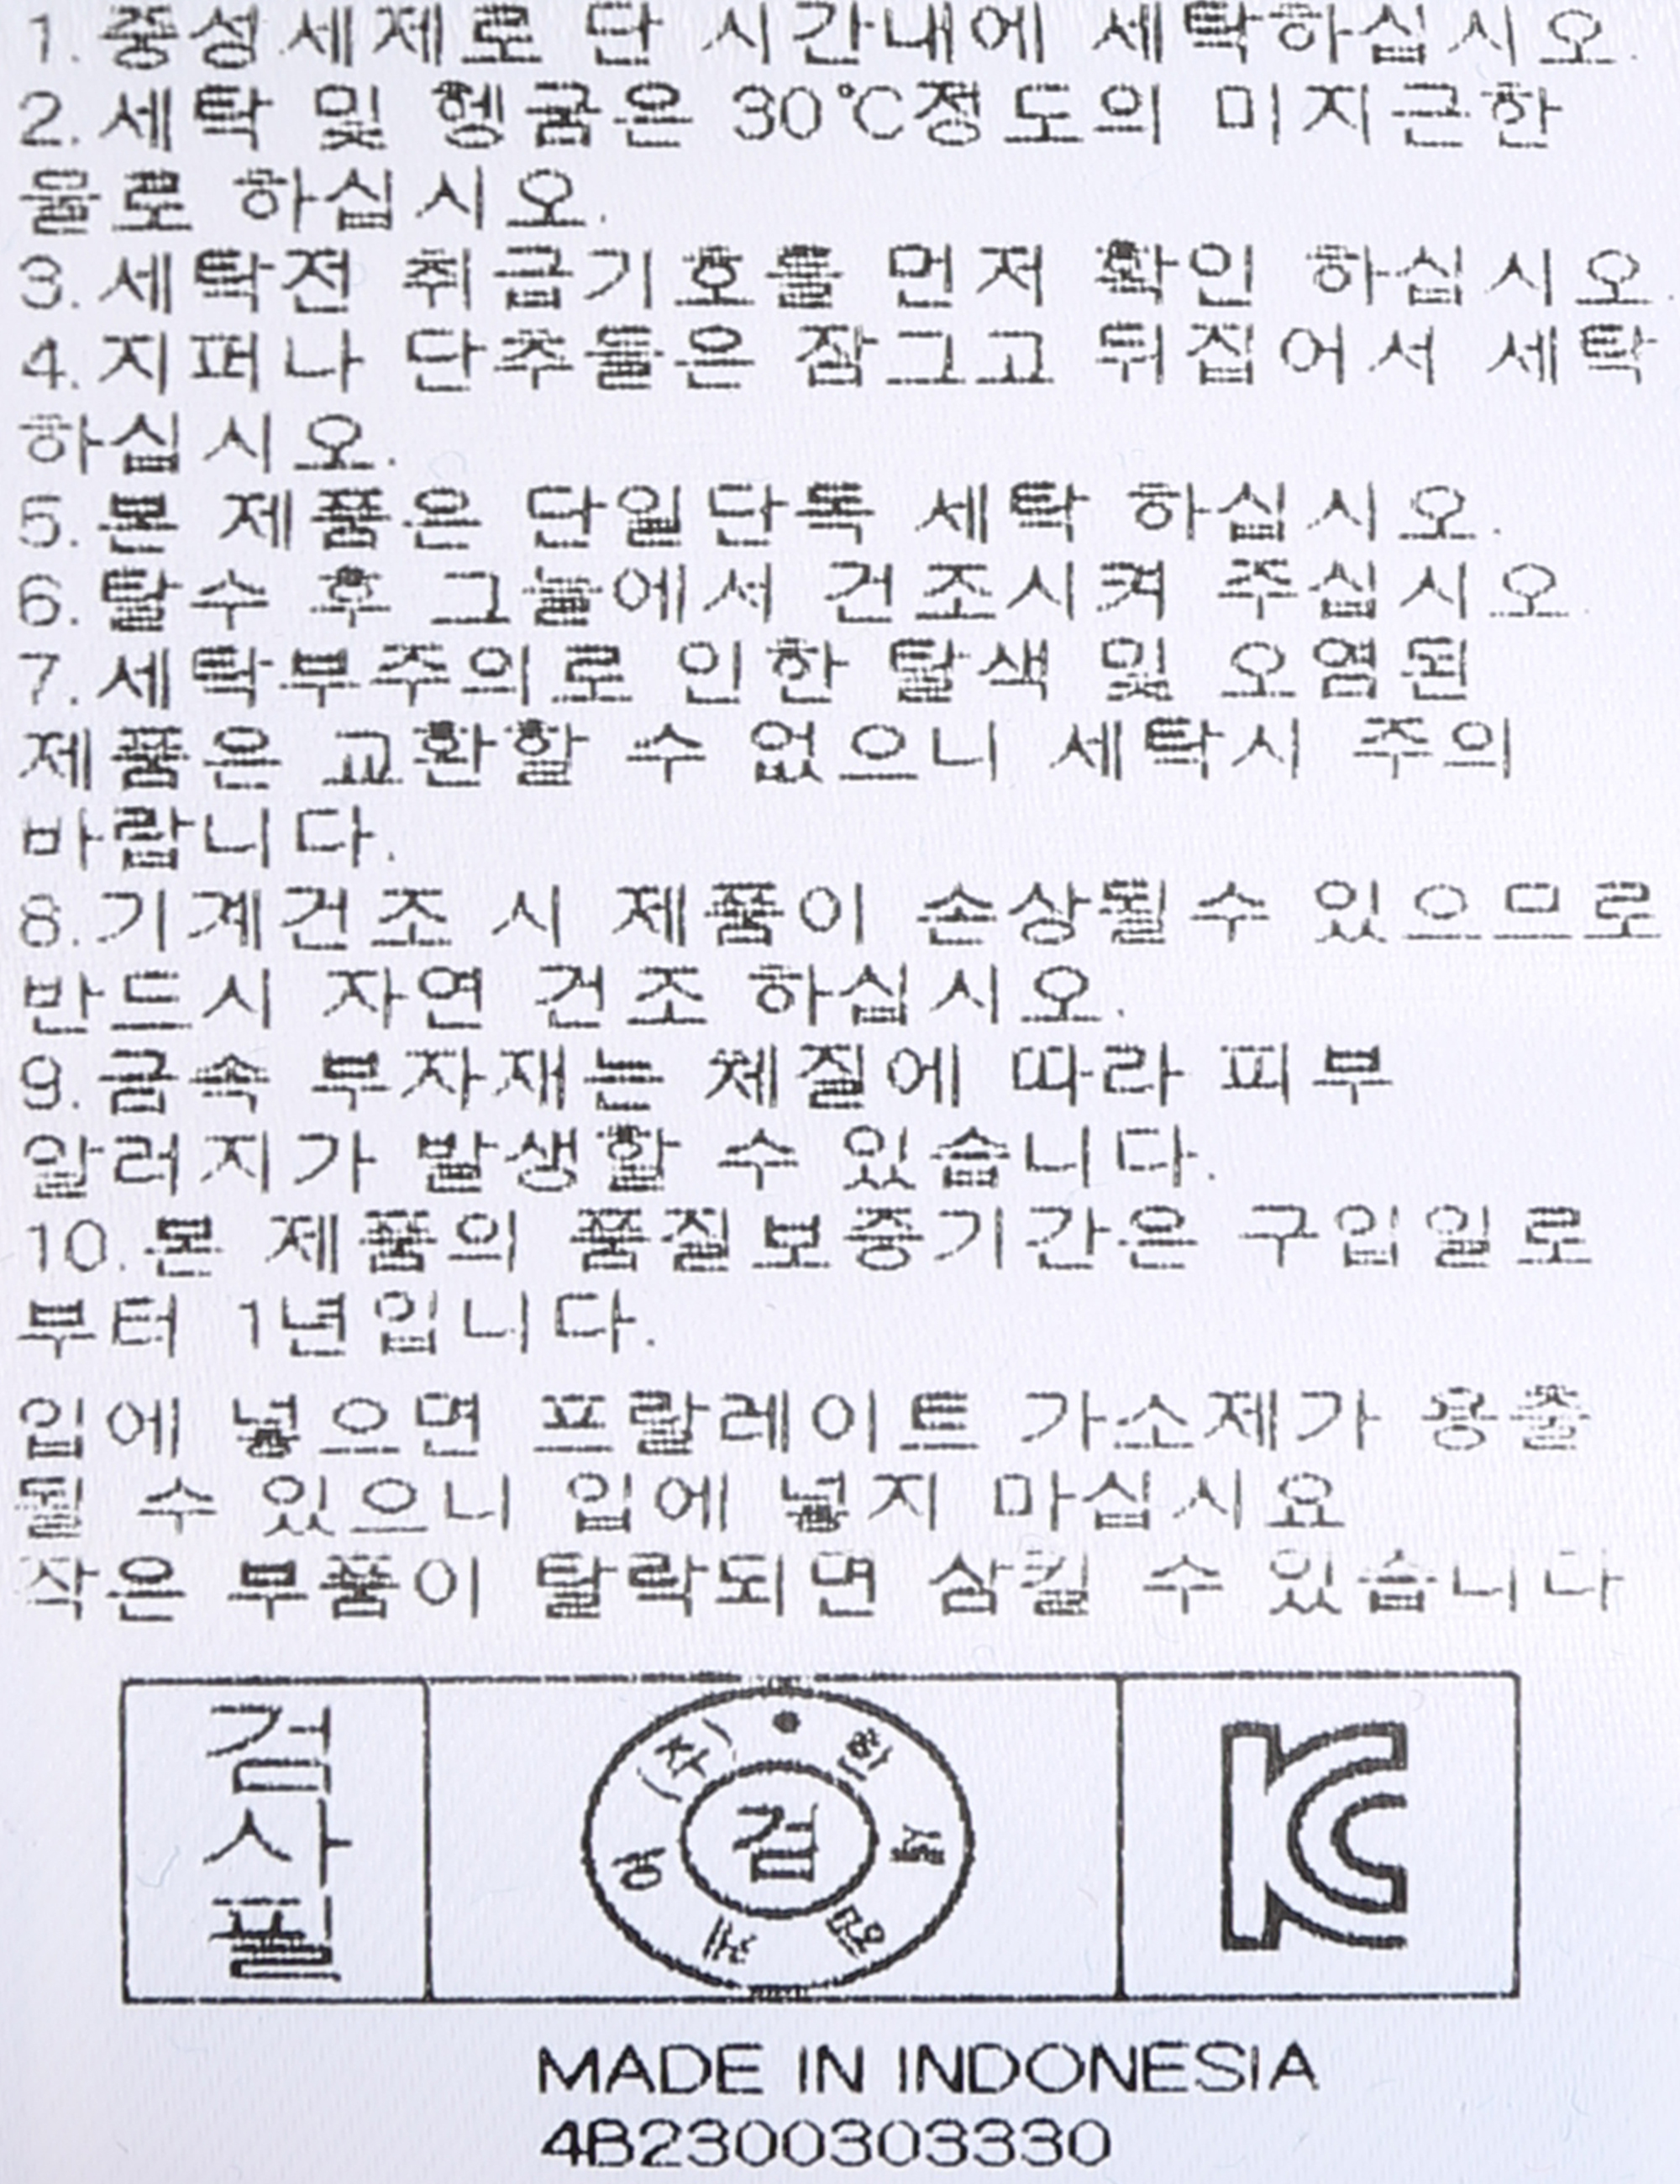 1. 중성세제로 단 시간내에 세탁하십시오.
2. 세탁 및 헹굼은 30℃정도의 미지근한
물로 하십시오.
3. 세탁전 취급기호를 먼저 확인 하십시오.
4. 지퍼나 단추들은 잠그고 뒤집어서 세탁
하십시오.
5. 본 제품은 단일단독 세탁 하십시오.
6. 탈수 후 그늘에서 건조시켜 주십시오.
7. 세탁부주의로 인한 탈색 및 오염된
제품은 교환할 수 없으니 세탁시 주의
바랍니다.
8. 기계건조 시 제품이 손상될수 있으므로
반드시 자연 건조 하십시오.
9. 금속 부자재는 체질에 따라 피부
알러지가 발생할 수 있습니다.
10. 본 제품의 품질보증기간은 구입일로
부터 1년입니다.
입에 넣으면 프탈레이트 가소제가 용출
될 수 있으니 입에 넣지 마십시요
작은 부품이 탈락되면 삼킬 수 있습니다
검
사
필
(주)
검
KC
MADE IN INDONESIA
4B2300303330